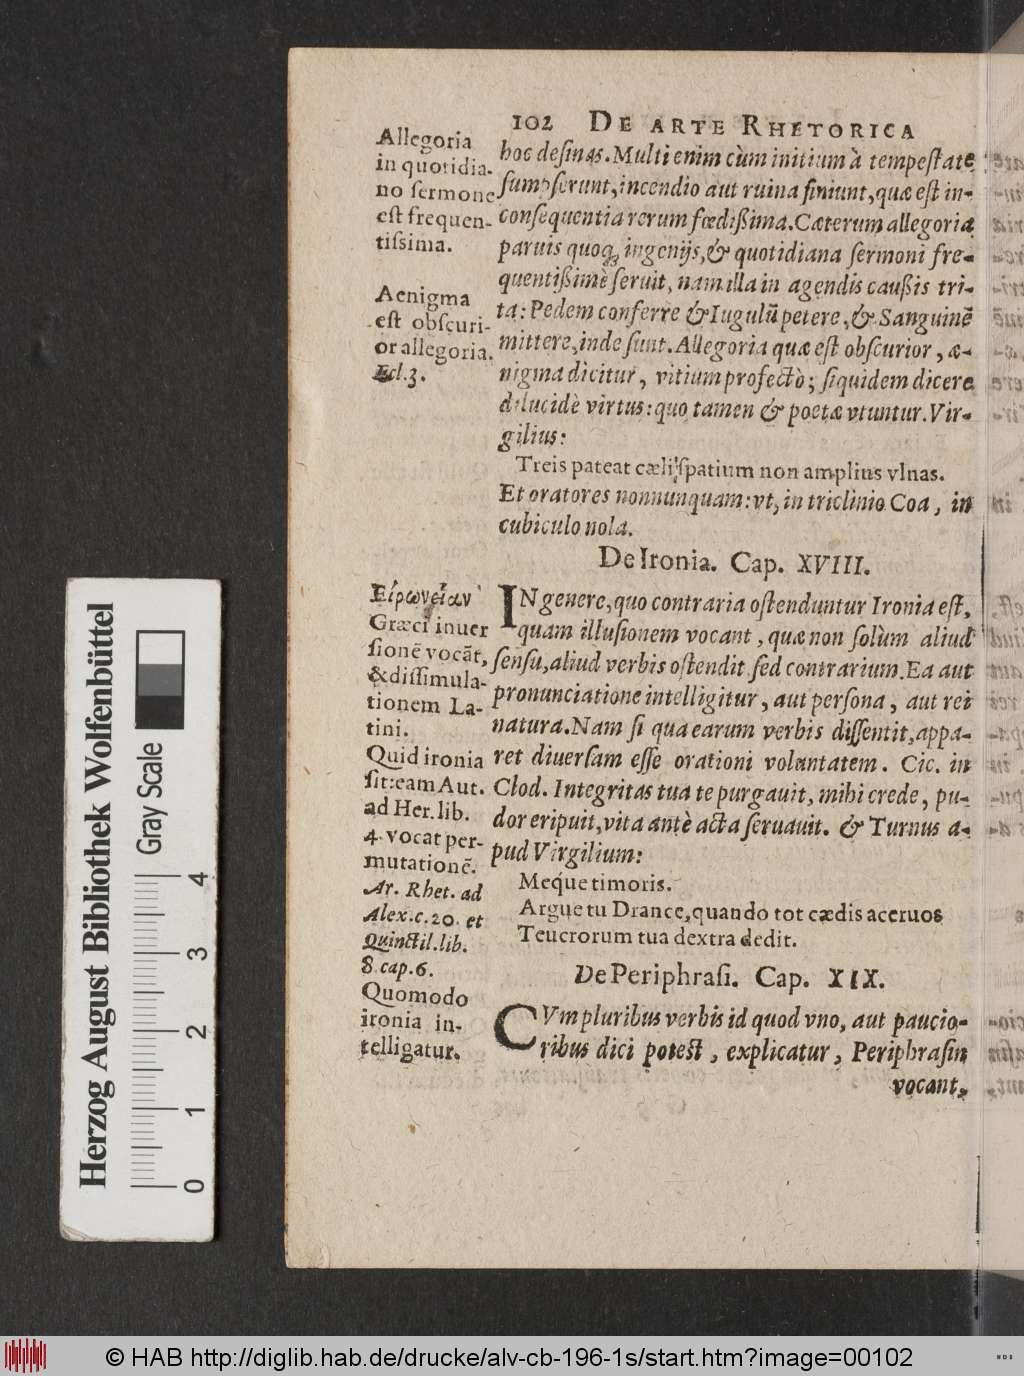 102 DE ARTE RHETORICA
Allegoria
in quotidia-
no sermone
est frequen-
tissima.
Aenigma
est obscuri-
or allegoria.
Ecl. 3.
hoc desinas. Multi enim cùm initium à tempestate
sumpserunt, incendio aut ruina finiunt, quæ est in-
consequentia rerum fœdißima. Cæterum allegoria
paruis quoq; ingenijs, & quotidiana sermoni fre-
quentißimè seruit, nam illa in agendis caußis tri-
ta: Pedem conferre & Iugulũ petere, & Sanguinẽ
mittere, inde sunt. Allegoria quæ est obscurior, æ-
nigma dicitur, vitium profectò; siquidem dicere
dilucidè virtus: quo tamen & poetæ vtuntur. Vir-
gilius:
Treis pateat cæli spatium non amplius vlnas.
Et oratores nonnunquam: vt, in triclinio Coa, in
cubiculo nola.
De Ironia. Cap. XVIII.
Εἰρωνείαν
Græci inuer
sionẽ vocãt,
& dissimula-
tionem La-
tini.
Quid ironia
sit: eam Aut.
ad Her. lib.
4. vocat per-
mutationẽ.
Ar. Rhet. ad
Alex. c. 20. et
Quinctil. lib.
8. cap. 6.
Quomodo
ironia in-
telligatur.
IN genere, quo contraria ostenduntur Ironia est,
quam illusionem vocant, quæ non solùm aliud
sensu, aliud verbis ostendit sed contrarium. Ea aut
pronunciatione intelligitur, aut persona, aut rei
natura. Nam si qua earum verbis dissentit, appa-
ret diuersam esse orationi voluntatem. Cic. in
Clod. Integritas tua te purgauit, mihi crede, pu-
dor eripuit, vita antè acta seruauit. & Turnus a-
pud Virgilium:
Meque timoris.
Argue tu Drance, quando tot cædis aceruos
Teucrorum tua dextra dedit.
De Periphrasi. Cap. XIX.
CVm pluribus verbis id quod vno, aut paucio-
ribus dici potest, explicatur, Periphrasin
vocant,
Herzog August Bibliothek Wolfenbüttel
Gray Scale
0 1 2 3 4
© HAB http://diglib.hab.de/drucke/alv-cb-196-1s/start.htm?image=00102